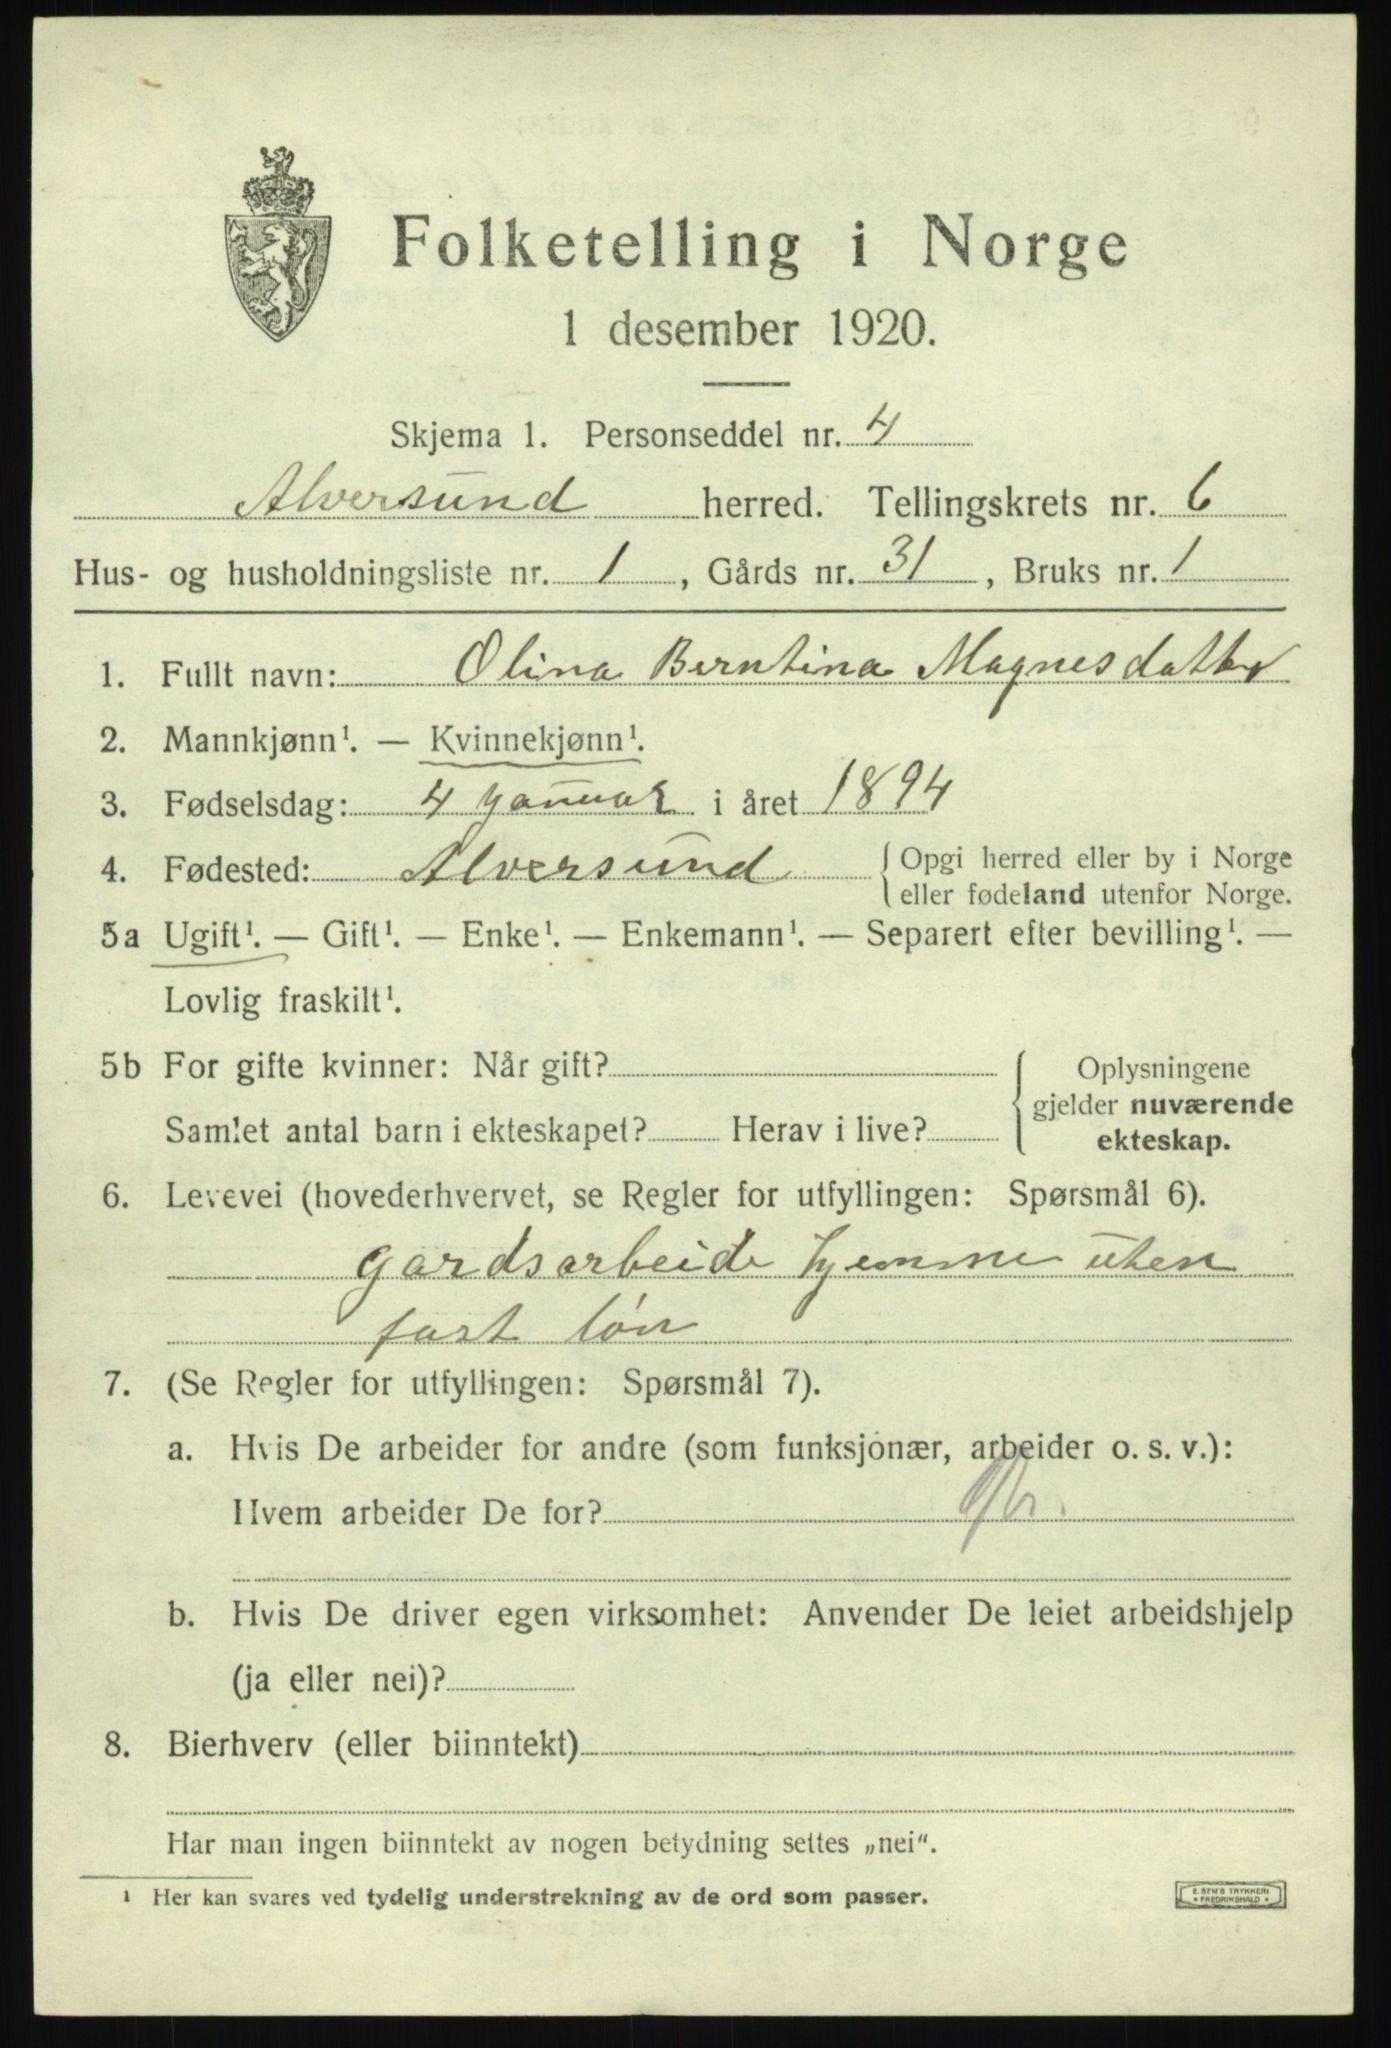 Folketelling i Norge
1 desember 1920.
Skjema 1. Personseddel nr. 4
Alversund herred. Tellingskrets nr. 6
Hus- og husholdningsliste nr. 1, Gårds nr. 31, Bruks nr. 1
1. Fullt navn: Olina Berntina Magnesdatter
2. Mannkjønn¹. — Kvinnekjønn¹.
3. Fødselsdag: 4 januar i året 1894
4. Fødested: Alversund { Opgi herred eller by i Norge
eller fødeland utenfor Norge.
5a Ugift¹. — Gift¹. — Enke¹. — Enkemann¹. — Separert efter bevilling¹. —
Lovlig fraskilt¹.
5b For gifte kvinner: Når gift?
Samlet antal barn i ekteskapet? Herav i live?
{ Oplysningene
gjelder nuværende
ekteskap.
6. Levevei (hovederhvervet, se Regler for utfyllingen: Spørsmål 6).
gardsarbeide hjemme uten
fast løn
7. (Se Regler for utfyllingen: Spørsmål 7).
a. Hvis De arbeider for andre (som funksjonær, arbeider o. s. v.):
Hvem arbeider De for?
b. Hvis De driver egen virksomhet: Anvender De leiet arbeidshjelp
(ja eller nei)?
8. Bierhverv (eller biinntekt)
Har man ingen biinntekt av nogen betydning settes „nei".
¹ Her kan svares ved tydelig understrekning av de ord som passer.
E. SEM'S TRYKKERI
* FREDRIKSHALD *